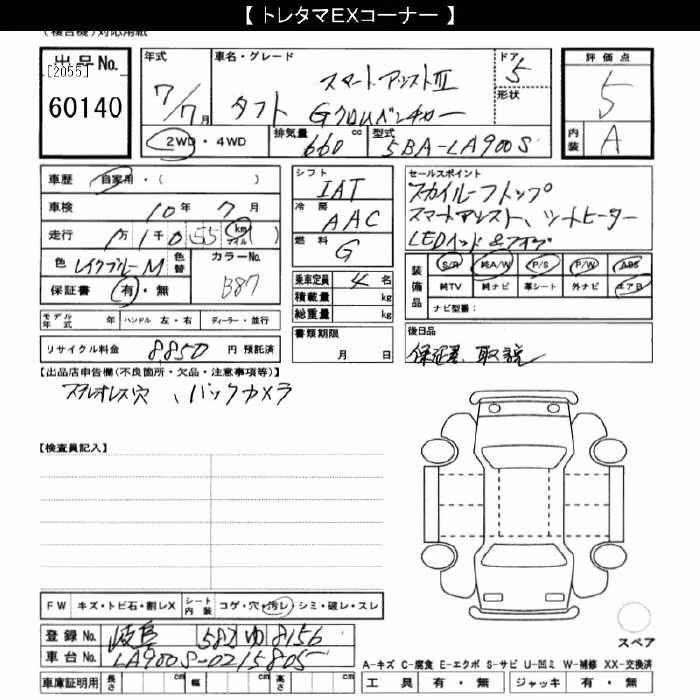 【 トレタマEXコーナー 】
(複合機)対応用紙
出品No.
[2055]
60140
年式 7/7月
車名・グレード スマートアシストⅢ
タフト Gクロムベンチャー
ドア 5
形状
評価点 5
内装 A
2WD・4WD
排気量 660 cc
型式 5BA-LA900S
車歴 自家用・( )
車検 10年 7月
走行 1万1千055 km マイル ( )
色 レイクブルーM
色替
カラーNo. B87
保証書 有・無
モデル年式 年 ハンドル 左・右 ディーラー・並行
リサイクル料金 8,850 円 預託済
シフト IAT
冷房 AAC
燃料 G
乗車定員 4 名
積載量 kg
総重量 kg
書類期限
月 日
セールスポイント
スカイルーフトップ
スマートアシスト、シートヒーター
LEDヘッド&フォグ
装備品
S/R 純A/W P/S P/W ABS
純TV 純ナビ 革シート 外ナビ エアB
ナビ型番:
後日品
保証書、取説
【出品店申告欄(不良箇所・欠品・注意事項等)】
ステレオレス穴、バックカメラ
【検査員記入】
FW キズ・トビ石・割レX
シート内装 コゲ・穴・汚レ・シミ・破レ・スレ
登録No. 岐阜 582 ゆ 8156
車台No. LA900S-0215805
車庫証明用 長さ cm 幅 cm 高さ cm
スペア
A-キズ C-腐食 E-エクボ S-サビ U-凹ミ W-補修 XX-交換済
工具 有・無 ジャッキ 有・無